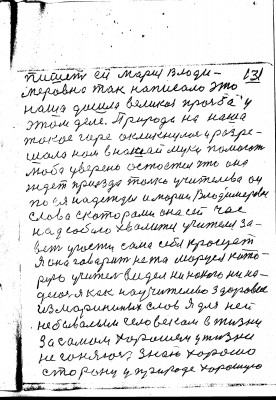 131
пишет ей мария Влоди-
меровна так написало это
наша душла великоя прозба у
этом деле. Природа на наша
такое гаре окликнулас и разре-
шала нам в нашай муки помогат
люба уверено остостся это она
ждет приезда толко учителва он
по ся надежды и мария Владимеровны
слова скоторами она сей час
надсобило хвалити учителя За-
вет упости сама себя
Я она говарит не та маруся кото-
рую учител видел ни на кого ни на-
деюся как на учителво здоровае
из слов я для ней
небывалым человекам в жизни
За самам хорошем ужизни
не гоняюс. Знаю хорошо
сторону у природе хорошую